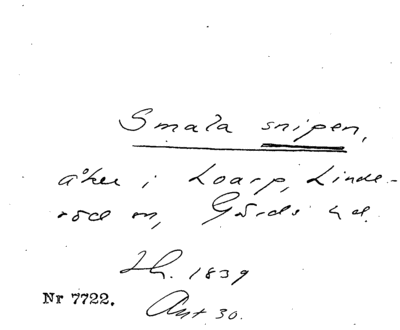 Smala snipen,
åker i Loarp, Linde-
röd sn, Gärds hd.
Lh. 1839
Nr 7722. Ant 30.